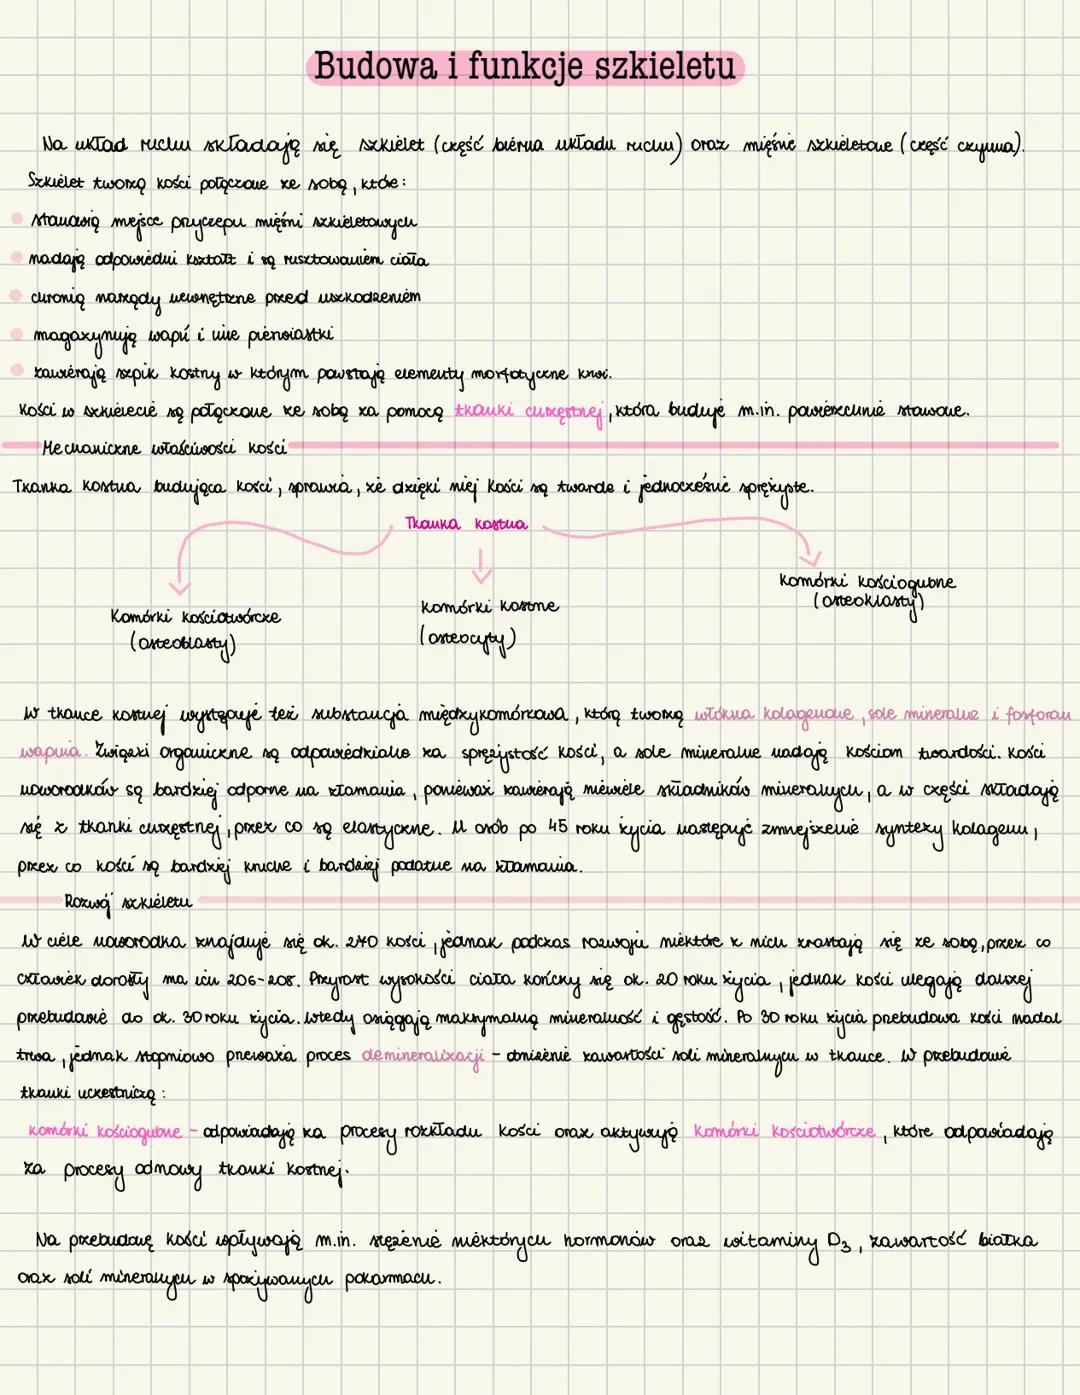 Budowa i funkcje szkieletu
Na układ ruchu składają się szkielet (część bierna układu ruchu) oraz mięśnie szkieletowe (część czynna).
Szkielet tworzą kości połączone ze sobą, które:
stanowią miejsce przyczepu mięśni szkieletowych
nadają odpowiedni kształt i są rusztowaniem ciała
chronią narządy wewnętrzne przed uszkodzeniem
magazynują wapń i inne pierwiastki
zawierają szpik kostny w którym powstają elementy morfotyczne krwi.
Kości w szkielecie są połączone ze sobą za pomocą tkanki chrzęstnej, która buduje m.in. powierzchnie stawowe.
Mechaniczne właściwości kości
Tkanka kostna budująca kości, sprawia, że dzięki niej kości są twarde i jednocześnie sprężyste.
Tkanka kostna
Komórki kościogubne
(osteoklasty)
Komórki kostne
(osteocyty)
Komórki kościotwórcze
(osteoblasty)
W tkance kostnej występuje też substancja międzykomórkowa, którą tworzą włókna kolagenowe, sole mineralne i fosforan
wapnia. Związki organiczne są odpowiedzialne za sprężystość kości, a sole mineralne nadają kościom twardości. Kości
noworodków są bardziej odporne na złamania, ponieważ zawierają niewiele składników mineralnych, a w części składają
się z tkanki chrzęstnej, przez co są elastyczne. U osób po 45 roku życia następuje zmniejszenie syntezy kolagenu,
przez co kości są bardziej kruche i bardziej podatne na złamania.
Rozwój szkieletu
W ciele noworodka znajduje się ok. 270 kości, jednak podczas rozwoju niektóre z nich zrastają się ze sobą, przez co
człowiek dorosły ma ich 206-208. Przyrost wysokości ciała kończy się ok. 20 roku życia, jednak kości ulegają dalszej
przebudowie do ok. 30 roku życia. Wtedy osiągają maksymalną mineralność i gęstość. Po 30 roku życia przebudowa kości nadal
trwa, jednak stopniowo przeważa proces demineralizacji - obniżenie zawartości soli mineralnych w tkance. W przebudowie
tkanki uczestniczą:
komórki kościogubne - odpowiadają za procesy rozkładu kości oraz aktywują komórki kościotwórcze, które odpowiadają
za procesy odnowy tkanki kostnej.
Na przebudowę kości wpływają m.in. stężenie niektórych hormonów oraz witaminy D3, zawartość białka
oraz soli mineralnych w spożywanych pokarmach.